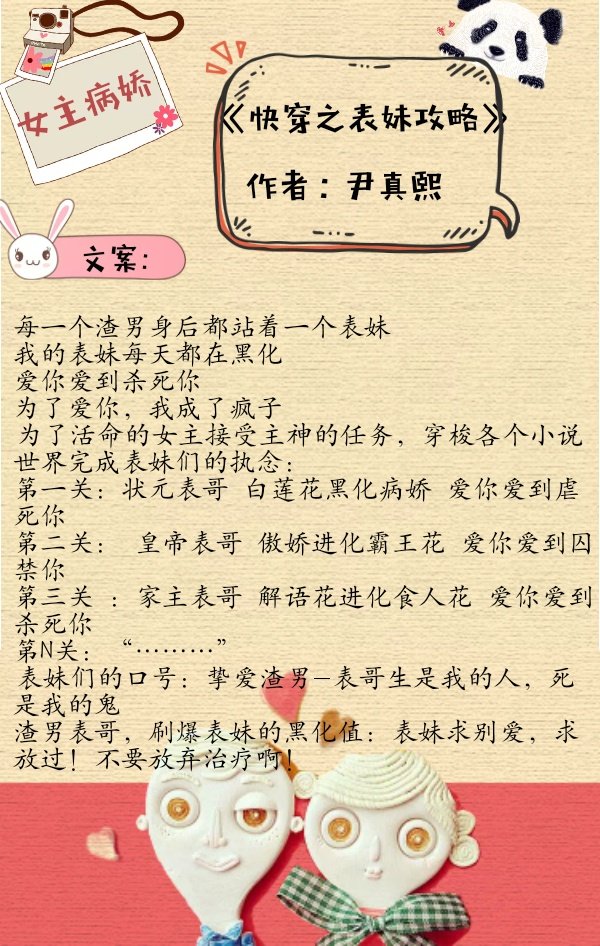 女主病娇
《快穿之表妹攻略》
作者：尹真熙
文案：
每一个渣男身后都站着一个表妹
我的表妹每天都在黑化
爱你爱到杀死你
为了爱你，我成了疯子
为了活命的女主接受主神的任务，穿梭各个小说
世界完成表妹们的执念：
第一关：状元表哥 白莲花黑化病娇 爱你爱到虐
死你
第二关： 皇帝表哥 傲娇进化霸王花 爱你爱到囚
禁你
第三关 ：家主表哥 解语花进化食人花 爱你爱到
杀死你
第N关：“………”
表妹们的口号：挚爱渣男—表哥生是我的人，死
是我的鬼
渣男表哥，刷爆表妹的黑化值：表妹求别爱，求
放过！不要放弃治疗啊！